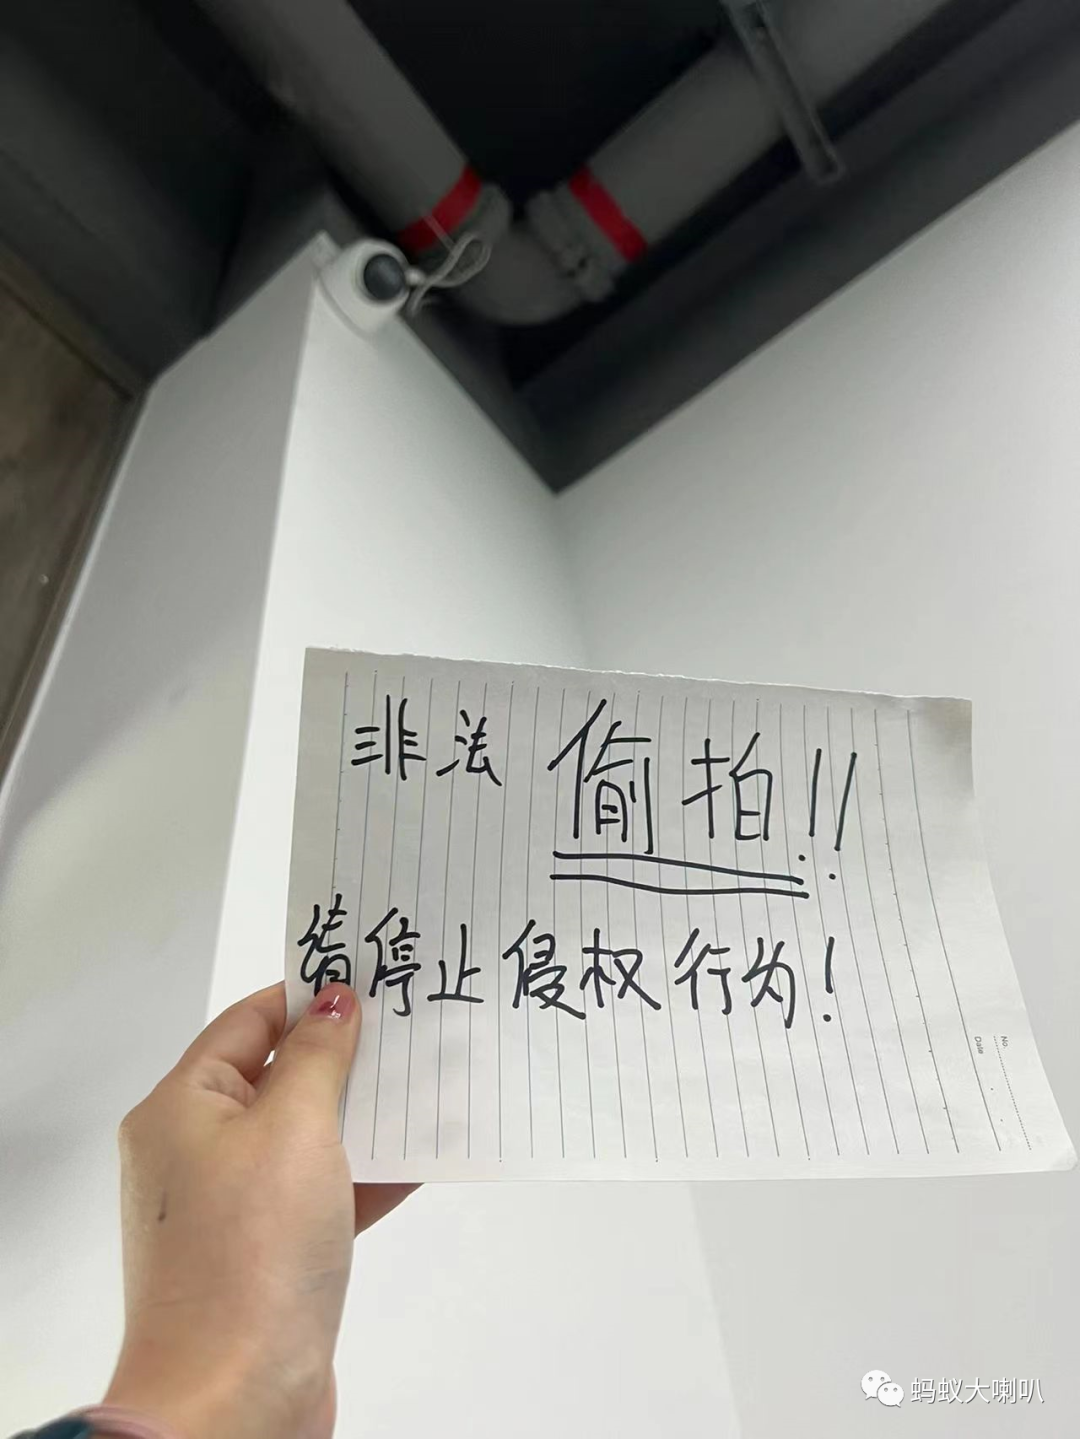 非法偷拍!!
请停止侵权行为!
No.
Date
蚂蚁大喇叭